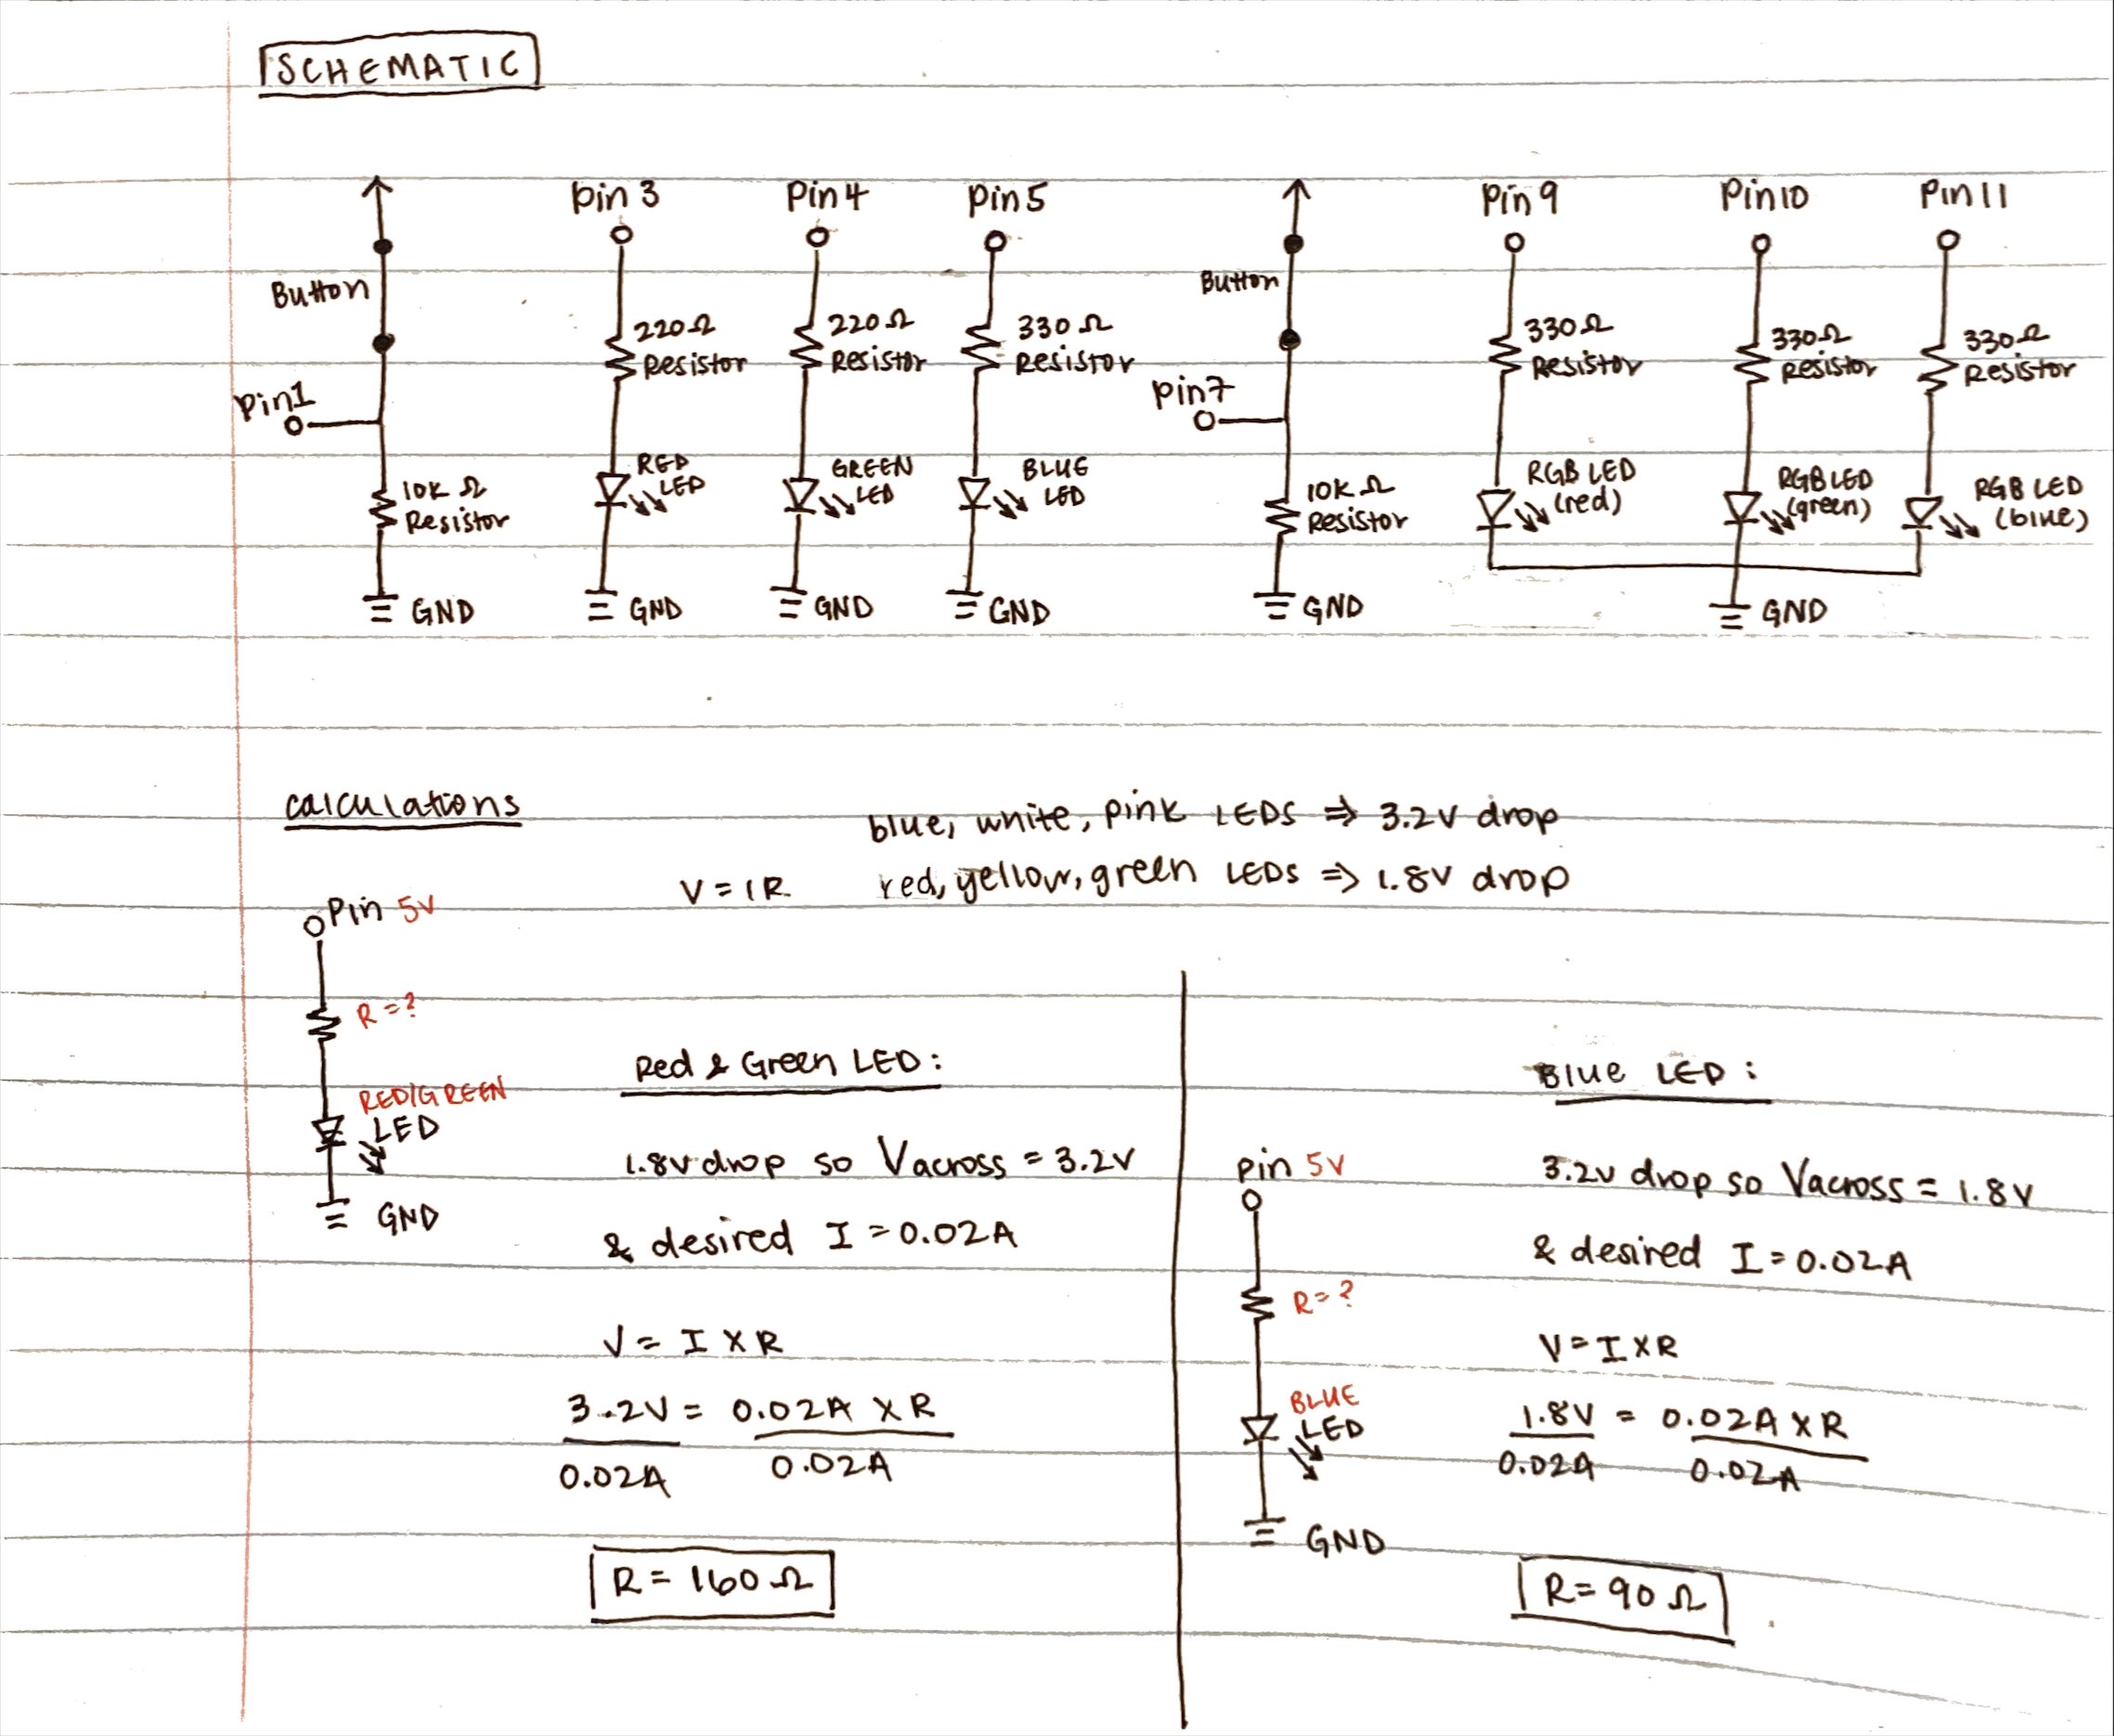 SCHEMATIC
Button
Pin1
10K Ω
Resistor
GND
pin 3
220Ω
Resistor
RED
LED
GND
Pin 4
220Ω
Resistor
GREEN
LED
GND
Pin 5
330Ω
Resistor
BLUE
LED
GND
Button
pin7
10K Ω
Resistor
GND
Pin 9
330Ω
Resistor
RGB LED
(red)
Pin10
330Ω
Resistor
RGB LED
(green)
GND
Pin 11
330Ω
Resistor
RGB LED
(blue)
calculations
blue, white, pink LEDS ⇒ 3.2V drop
V = IR
red, yellow, green LEDs ⇒ 1.8V drop
Pin 5V
R=?
RED/GREEN
LED
GND
Red & Green LED:
1.8V drop so Vacross = 3.2V
& desired I = 0.02A
V = I X R
3.2V = 0.02A X R
0.02A 0.02A
R = 160 Ω
Blue LED:
pin 5V
R=?
BLUE
LED
GND
3.2V drop so Vacross = 1.8V
& desired I = 0.02A
V = I X R
1.8V = 0.02A X R
0.02A 0.02A
R = 90 Ω